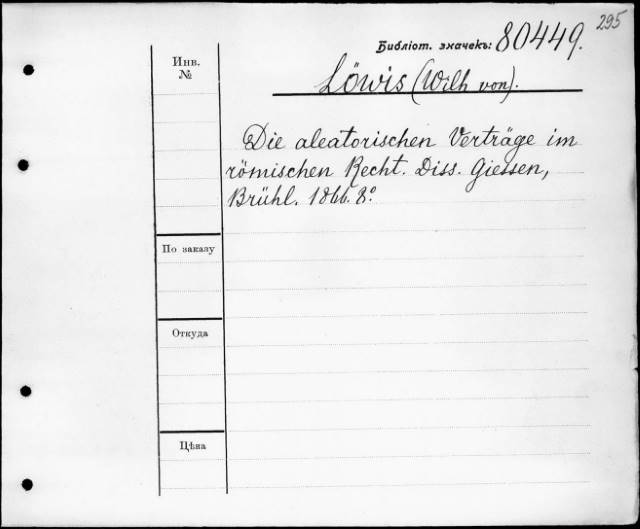 295
Библіот. значекъ: 80449.
Инв.
№
Löwis (Wilh von).
Die aleatorischen Verträge im
römischen Recht. Diss. Giessen,
Brühl. 1866. 8º
По заказу
Откуда
Цѣна